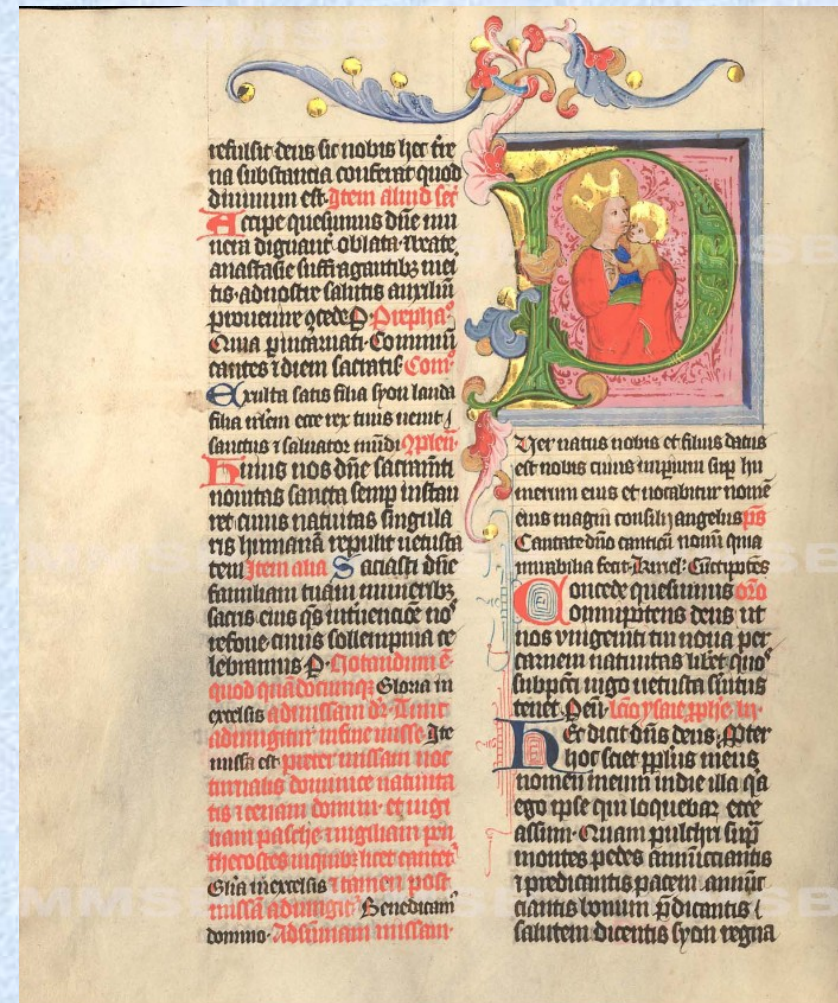 refulsit deus sic nobis hec tre
na substancia conferat quod
diuinum est. Item aliud secͬ
Accipe quesumus dn̄e mu
nera dignant oblata. et beate
anastasie suffragantibꝫ mei
tis. ad nostre salutis auxiliū
prouenire ꝯcede P. Prephaº
Quia p incarnati. Commūi
cantes ⁊ diem sacratisͬ Comº
Exulta satis filia syon lauda
filia irlem ecce rex tuus uenit
sanctus ⁊ saluator mūdi ꝯplenͬ
Huius nos dn̄e sacramti
nouitas sancta semp instau
ret cuius natiuitas singula
ris humanā repulit uetusta
tem Item alia Saciasti dn̄e
familiam tuam muneribꝫ
sacris eius qs̄ intuencōe noˢ
refoue cuius sollempnia ce
lebramus P. Notandum ē
quod quādocumqꝫ Gloria in
excelsis ad missam dr̄. Tunc
adiungitur in fine misse Ite
missa est preter missam noc
turnalis dominice natiuita
tis ⁊ cenam domini. et uigi
liam pasche ⁊ uigiliam pen
thecostes in quibꝫ licet cantetͬ
Glīa in excelsis ⁊ tamen post
missā adiungitͬ Benedicam
domino. Ad sūmam missam.
P
Uer natus nobis et filius datus
est nobis cuius imperium sup hu
merum eius et uocabitur nomē
eius magni consilij angelus p̄s
Cantate dn̄o canticū nouū quia
mirabilia fecit. Kyriel. Cūctipotēs
Concede quesumus oro
omnipotens deus ut
nos vnigeniti tui noua per
carnem natiuitas libet quoˢ
sub pccī iugo uetusta seruitus
tenet. P eūͬ. lcīo ysaie pphe. iij.
Hec dicit dn̄s deus. Propter
hoc sciet pplus meus
nomen meum in die illa qa
ego ipse qui loquebar ecce
assum. Quam pulchri sup
montes pedes annūcciantis
⁊ predicantis pacem. annūc
ciantis bonum. p̄dicantis
salutem dicentis syon regna
MMSB